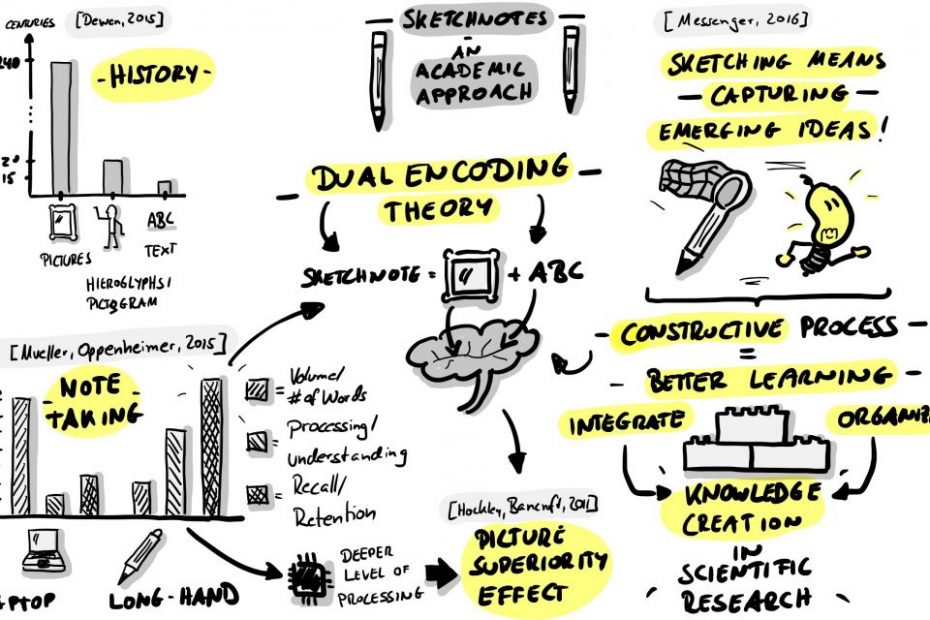 CENTURIES
[Dewan, 2015]
240
20
15
- HISTORY -
PICTURES
HIEROGLYPHS/
PICTOGRAM
ABC
TEXT
SKETCHNOTES
- AN
ACADEMIC
APPROACH
[Messenger, 2016]
SKETCHING MEANS
- CAPTURING -
EMERGING IDEAS!
- DUAL ENCODING -
THEORY
SKETCHNOTE = + ABC
[Mueller, Oppenheimer, 2015]
NOTE
- TAKING -
= Volume/
# of Words
= Processing/
understanding
= Recall/
Retention
LONG-HAND
DEEPER
LEVEL OF
PROCESSING
[Hockley, Bancroft, 2011]
PICTURE
SUPERIORITY
EFFECT
- CONSTRUCTIVE PROCESS -
=
- BETTER LEARNING -
INTEGRATE
KNOWLEDGE
CREATION
IN
SCIENTIFIC
RESEARCH